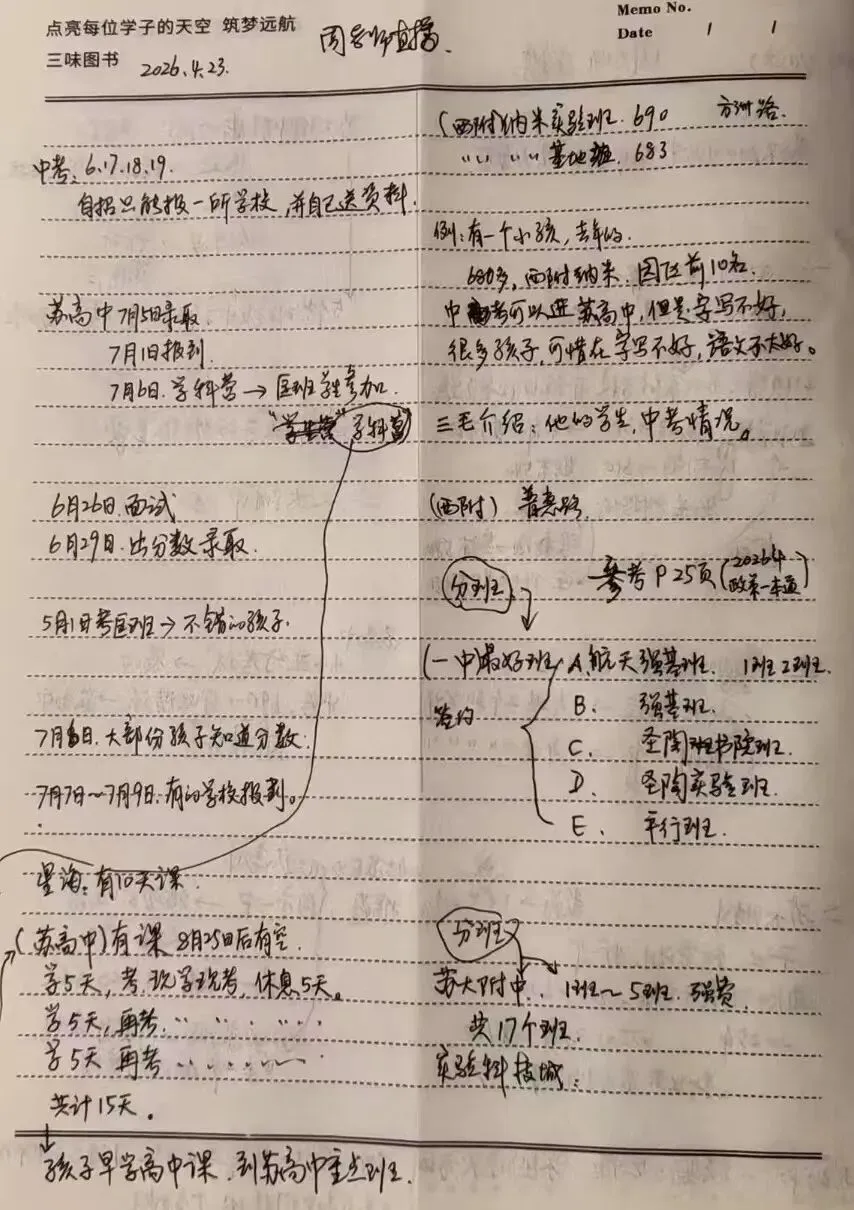 点亮每位学子的天空 筑梦远航
三味图书 2026.4.23.
周老师直播.
Memo No.
Date / /
中考: 6.17.18.19.
自招只能报一所学校,并自己送资料.
苏高中7月5日录取.
7月1日报到.
7月6日.学科营→匡班学生参加.
学科营
6月26日.面试
6月29日.出分数录取.
5月1日考匡班→不错的孩子.
7月6日.大部份孩子知道分数.
7月7日~7月9日.有的学校报到。
星海:有10天课.
(苏高中)有课 8月25日后有空.
学5天,考.现学现考,休息5天。
学5天,再考. 〃 〃 . 〃 〃 .
学5天 再考
共计15天。
↓
孩子早学高中课.到苏高中重点班.
(西附)纳米实验班. 690 方洲路.
〃 〃 〃 〃 基地班. 683
例:有一个小孩,去年的.
680多,西附纳米.园区前10名.
中考可以进苏高中,但是字写不好,
很多孩子,可惜在字写不好,语文不太好。
三毛介绍:他的学生,中考情况。
(西附) 普惠路.
分班 参考P25页(2026年政策一本通)
(一中)最好班 A.航天强基班. 1班2班.
签约 B. 强基班.
C. 圣陶班书院班.
D. 圣陶实验班.
E. 平行班.
分班
苏大附中. 1班~5班.强费.
共17个班.
实验科技城: